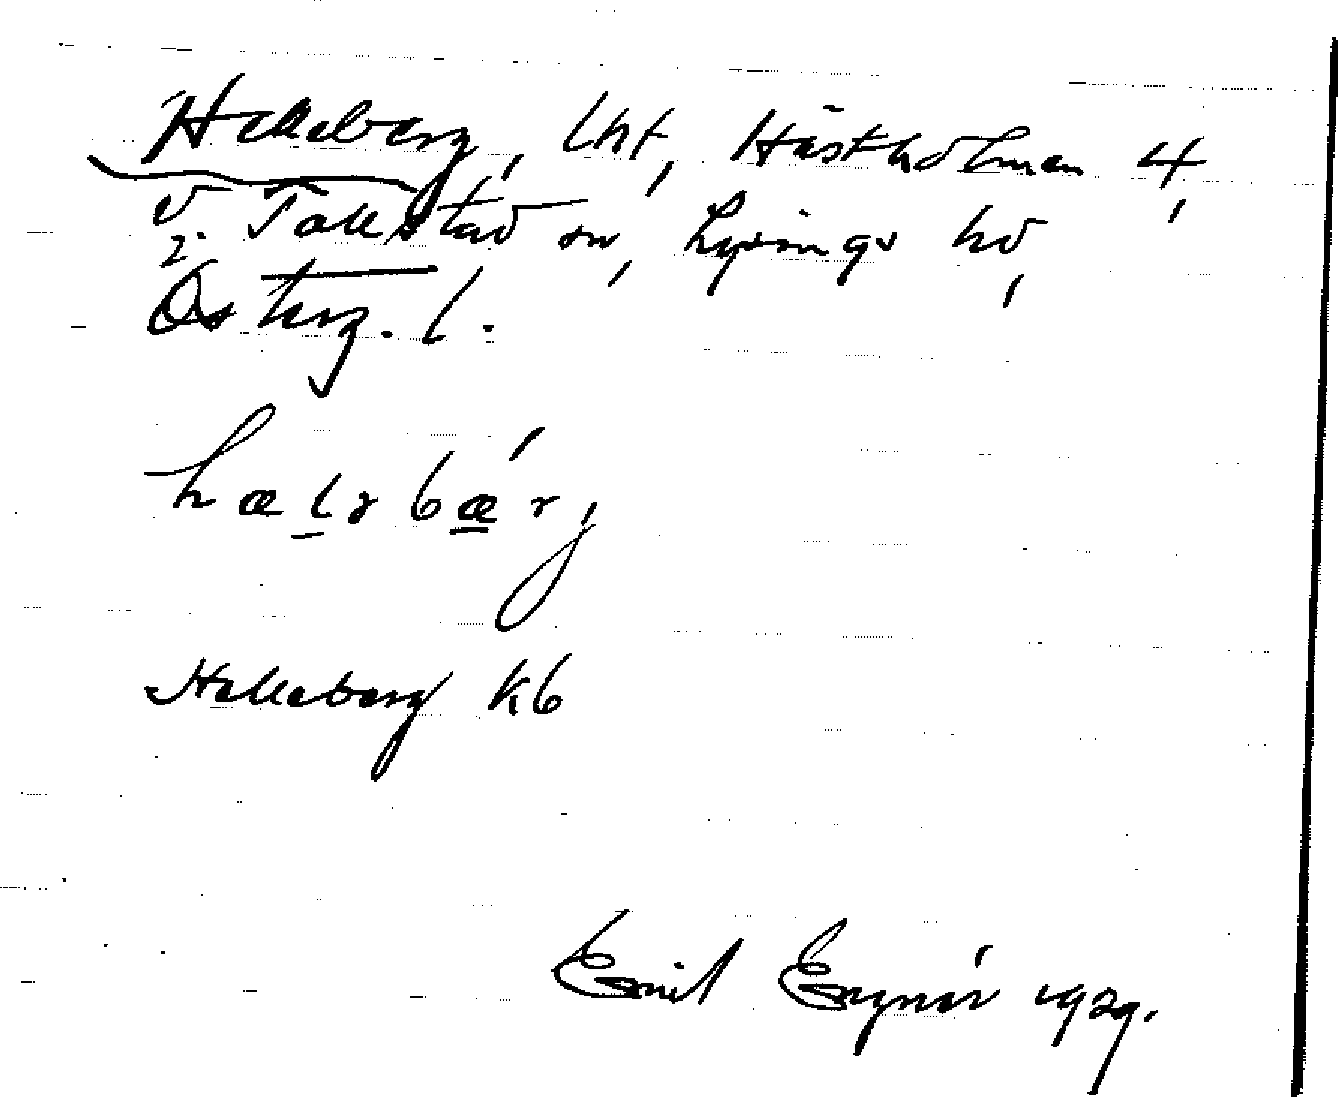 Helleberg, lht, Hästholmen 4,
V. Tollstad sn, Lysings hd,
2.
Österg. l.
hælɜbǽrj
Helleberg kb
Emil 1929.